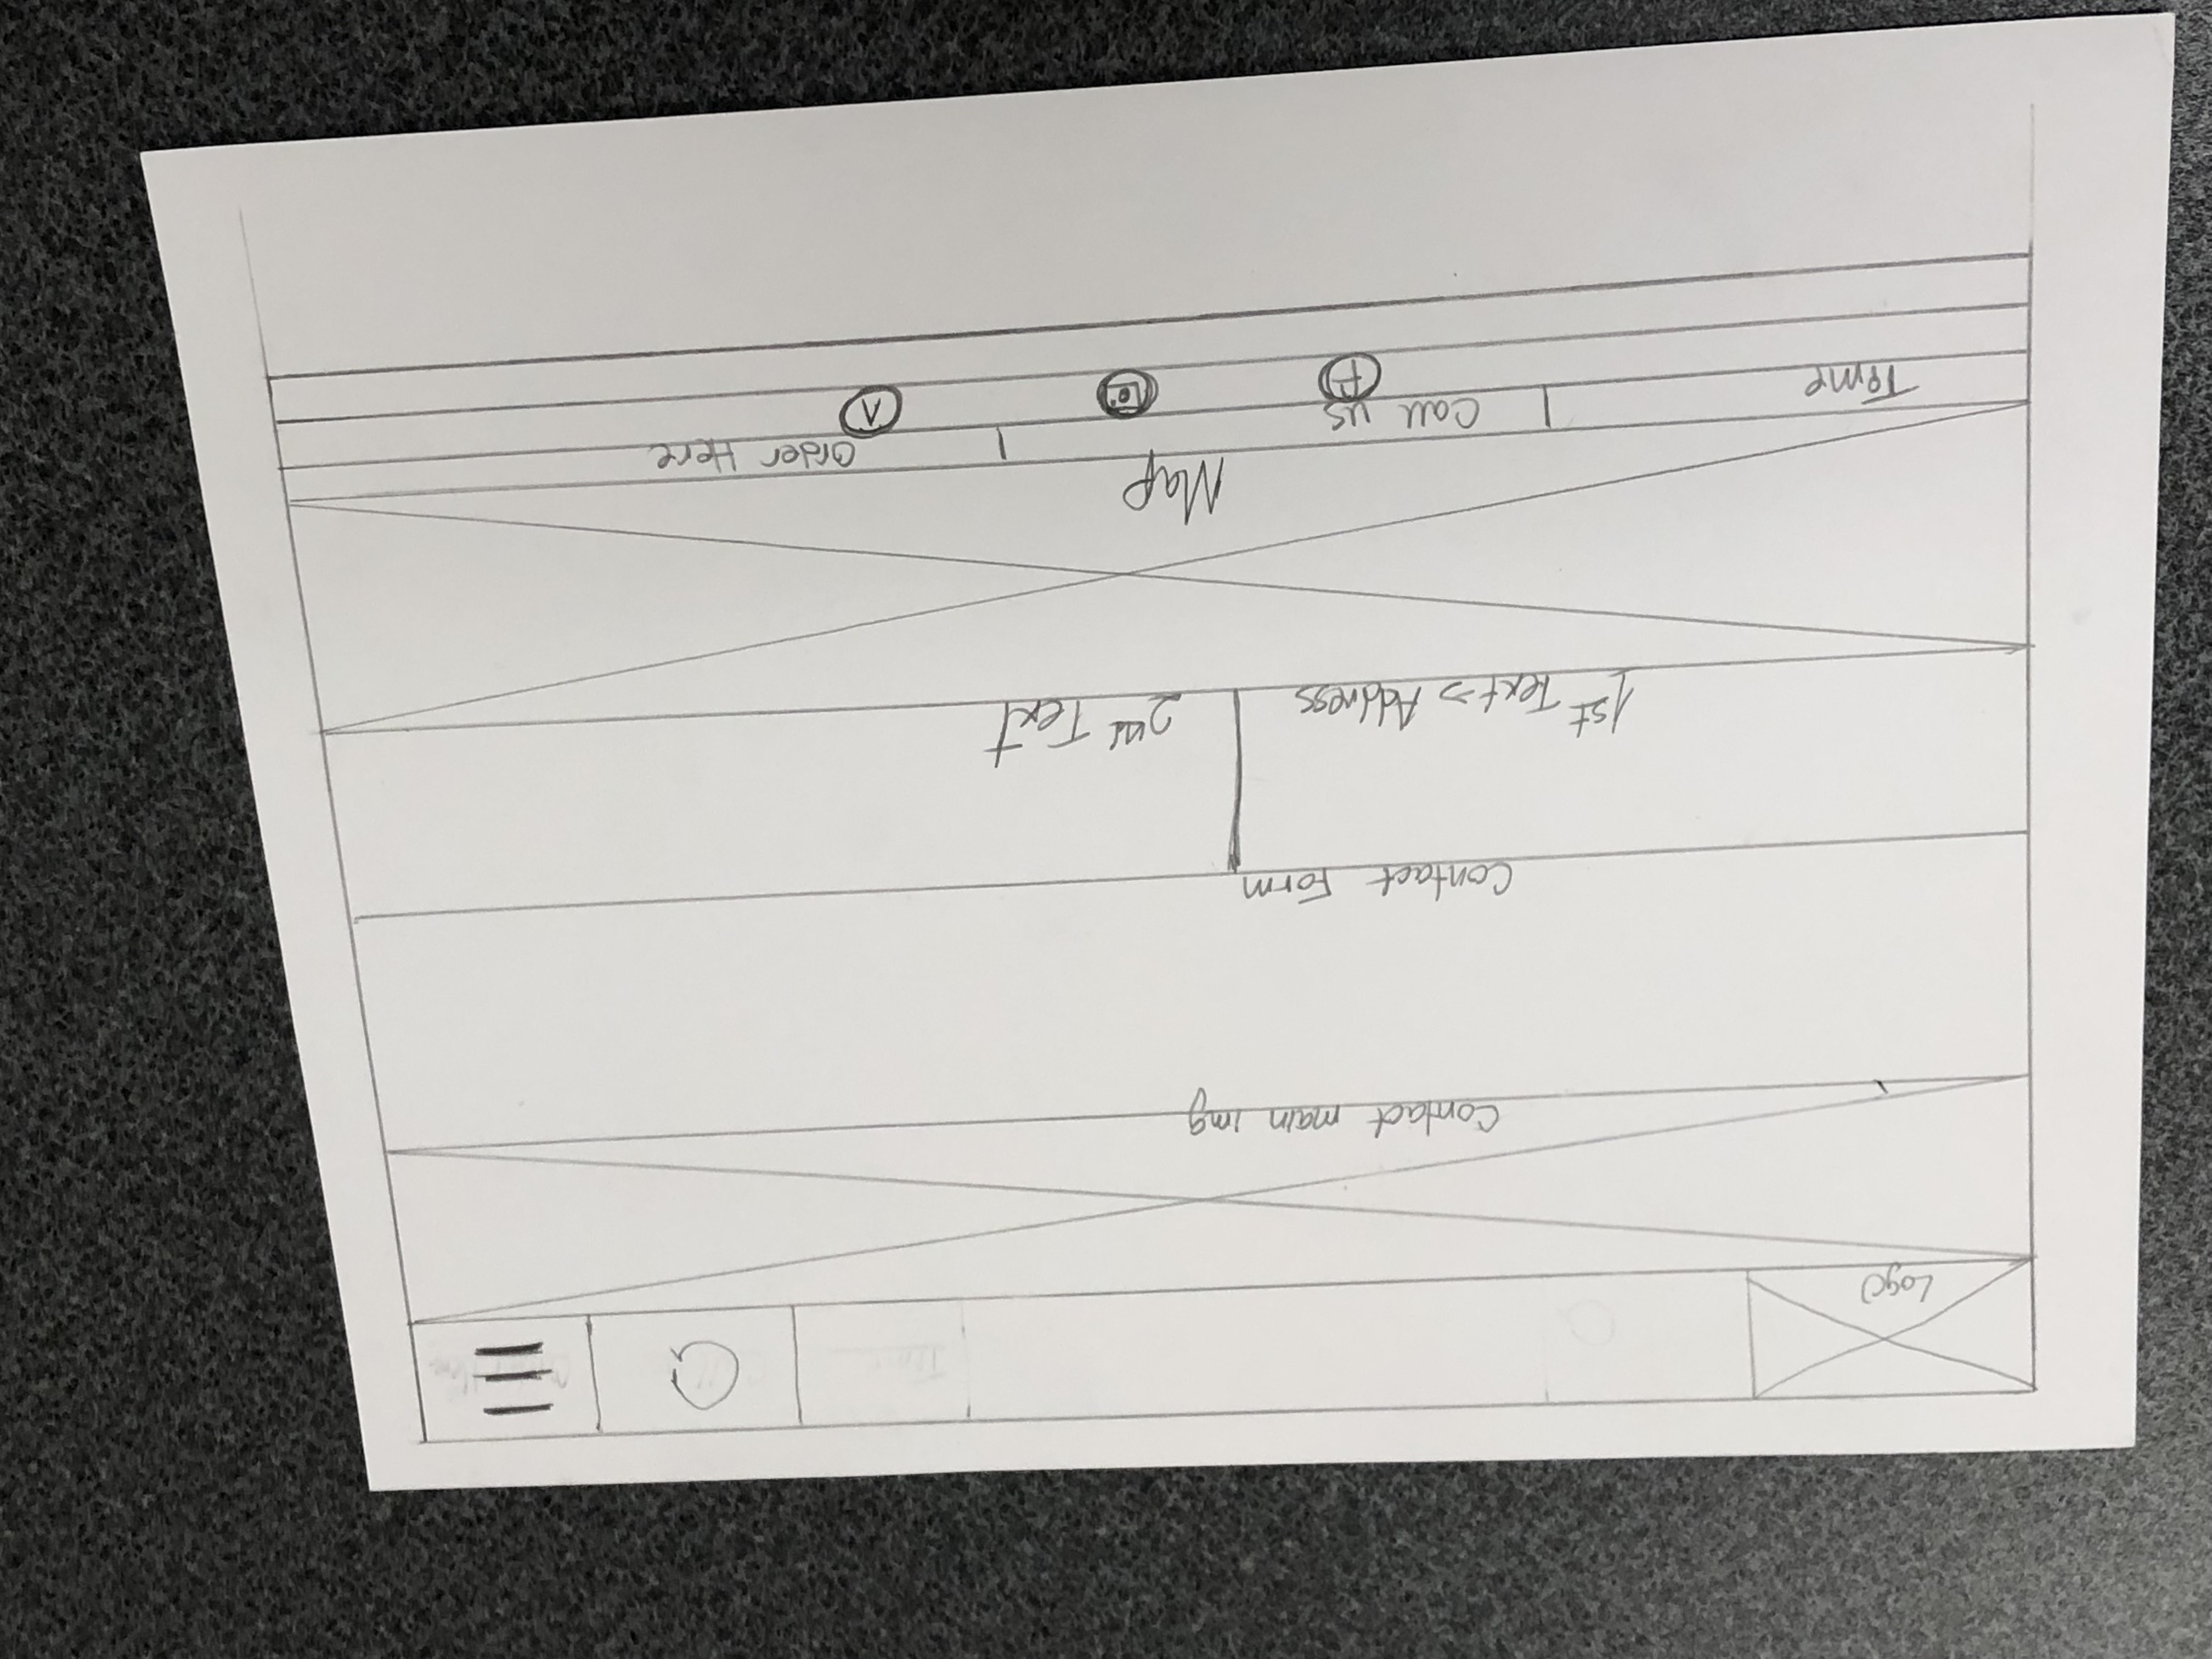 Logo
Contact main img
Contact Form
1st Text -> Address
2nd Text
Map
Time | Call us | Order Here